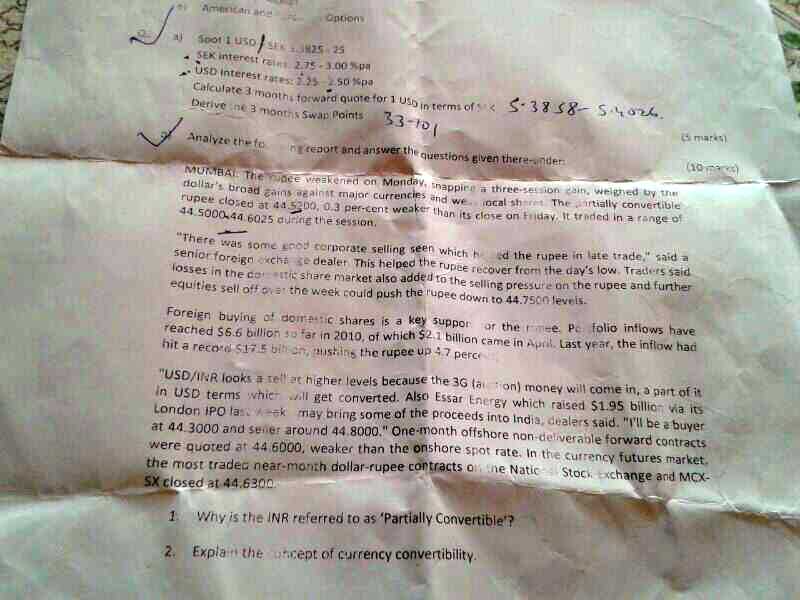 American and Options
a) Spot 1 USD / SEK 5.3825 - 25
SEK interest rates: 2.75 - 3.00 %pa
USD interest rates: 2.25 - 2.50 %pa
Calculate 3 months forward quote for 1 USD in terms of SEK 5.3858 - 5.4026.
Derive the 3 months Swap Points 33-101
(5 marks)
Analyze the following report and answer the questions given there-under:
(10 marks)
MUMBAI: The rupee weakened on Monday, snapping a three-session gain, weighed by the
dollar's broad gains against major currencies and weak local shares. The partially convertible
rupee closed at 44.5200, 0.3 per-cent weaker than its close on Friday. It traded in a range of
44.5000-44.6025 during the session.
"There was some good corporate selling seen which helped the rupee in late trade," said a
senior foreign exchange dealer. This helped the rupee recover from the day's low. Traders said
losses in the domestic share market also added to the selling pressure on the rupee and further
equities sell off over the week could push the rupee down to 44.7500 levels.
Foreign buying of domestic shares is a key support for the rupee. Portfolio inflows have
reached $6.6 billion so far in 2010, of which $2.1 billion came in April. Last year, the inflow had
hit a record $17.5 billion, pushing the rupee up 4.7 percent.
"USD/INR looks a sell at higher levels because the 3G (auction) money will come in, a part of it
in USD terms which will get converted. Also Essar Energy which raised $1.95 billion via its
London IPO last week may bring some of the proceeds into India, dealers said. "I'll be a buyer
at 44.3000 and seller around 44.8000." One-month offshore non-deliverable forward contracts
were quoted at 44.6000, weaker than the onshore spot rate. In the currency futures market,
the most traded near-month dollar-rupee contracts on the National Stock Exchange and MCX-
SX closed at 44.6300.
1. Why is the INR referred to as 'Partially Convertible'?
2. Explain the concept of currency convertibility.